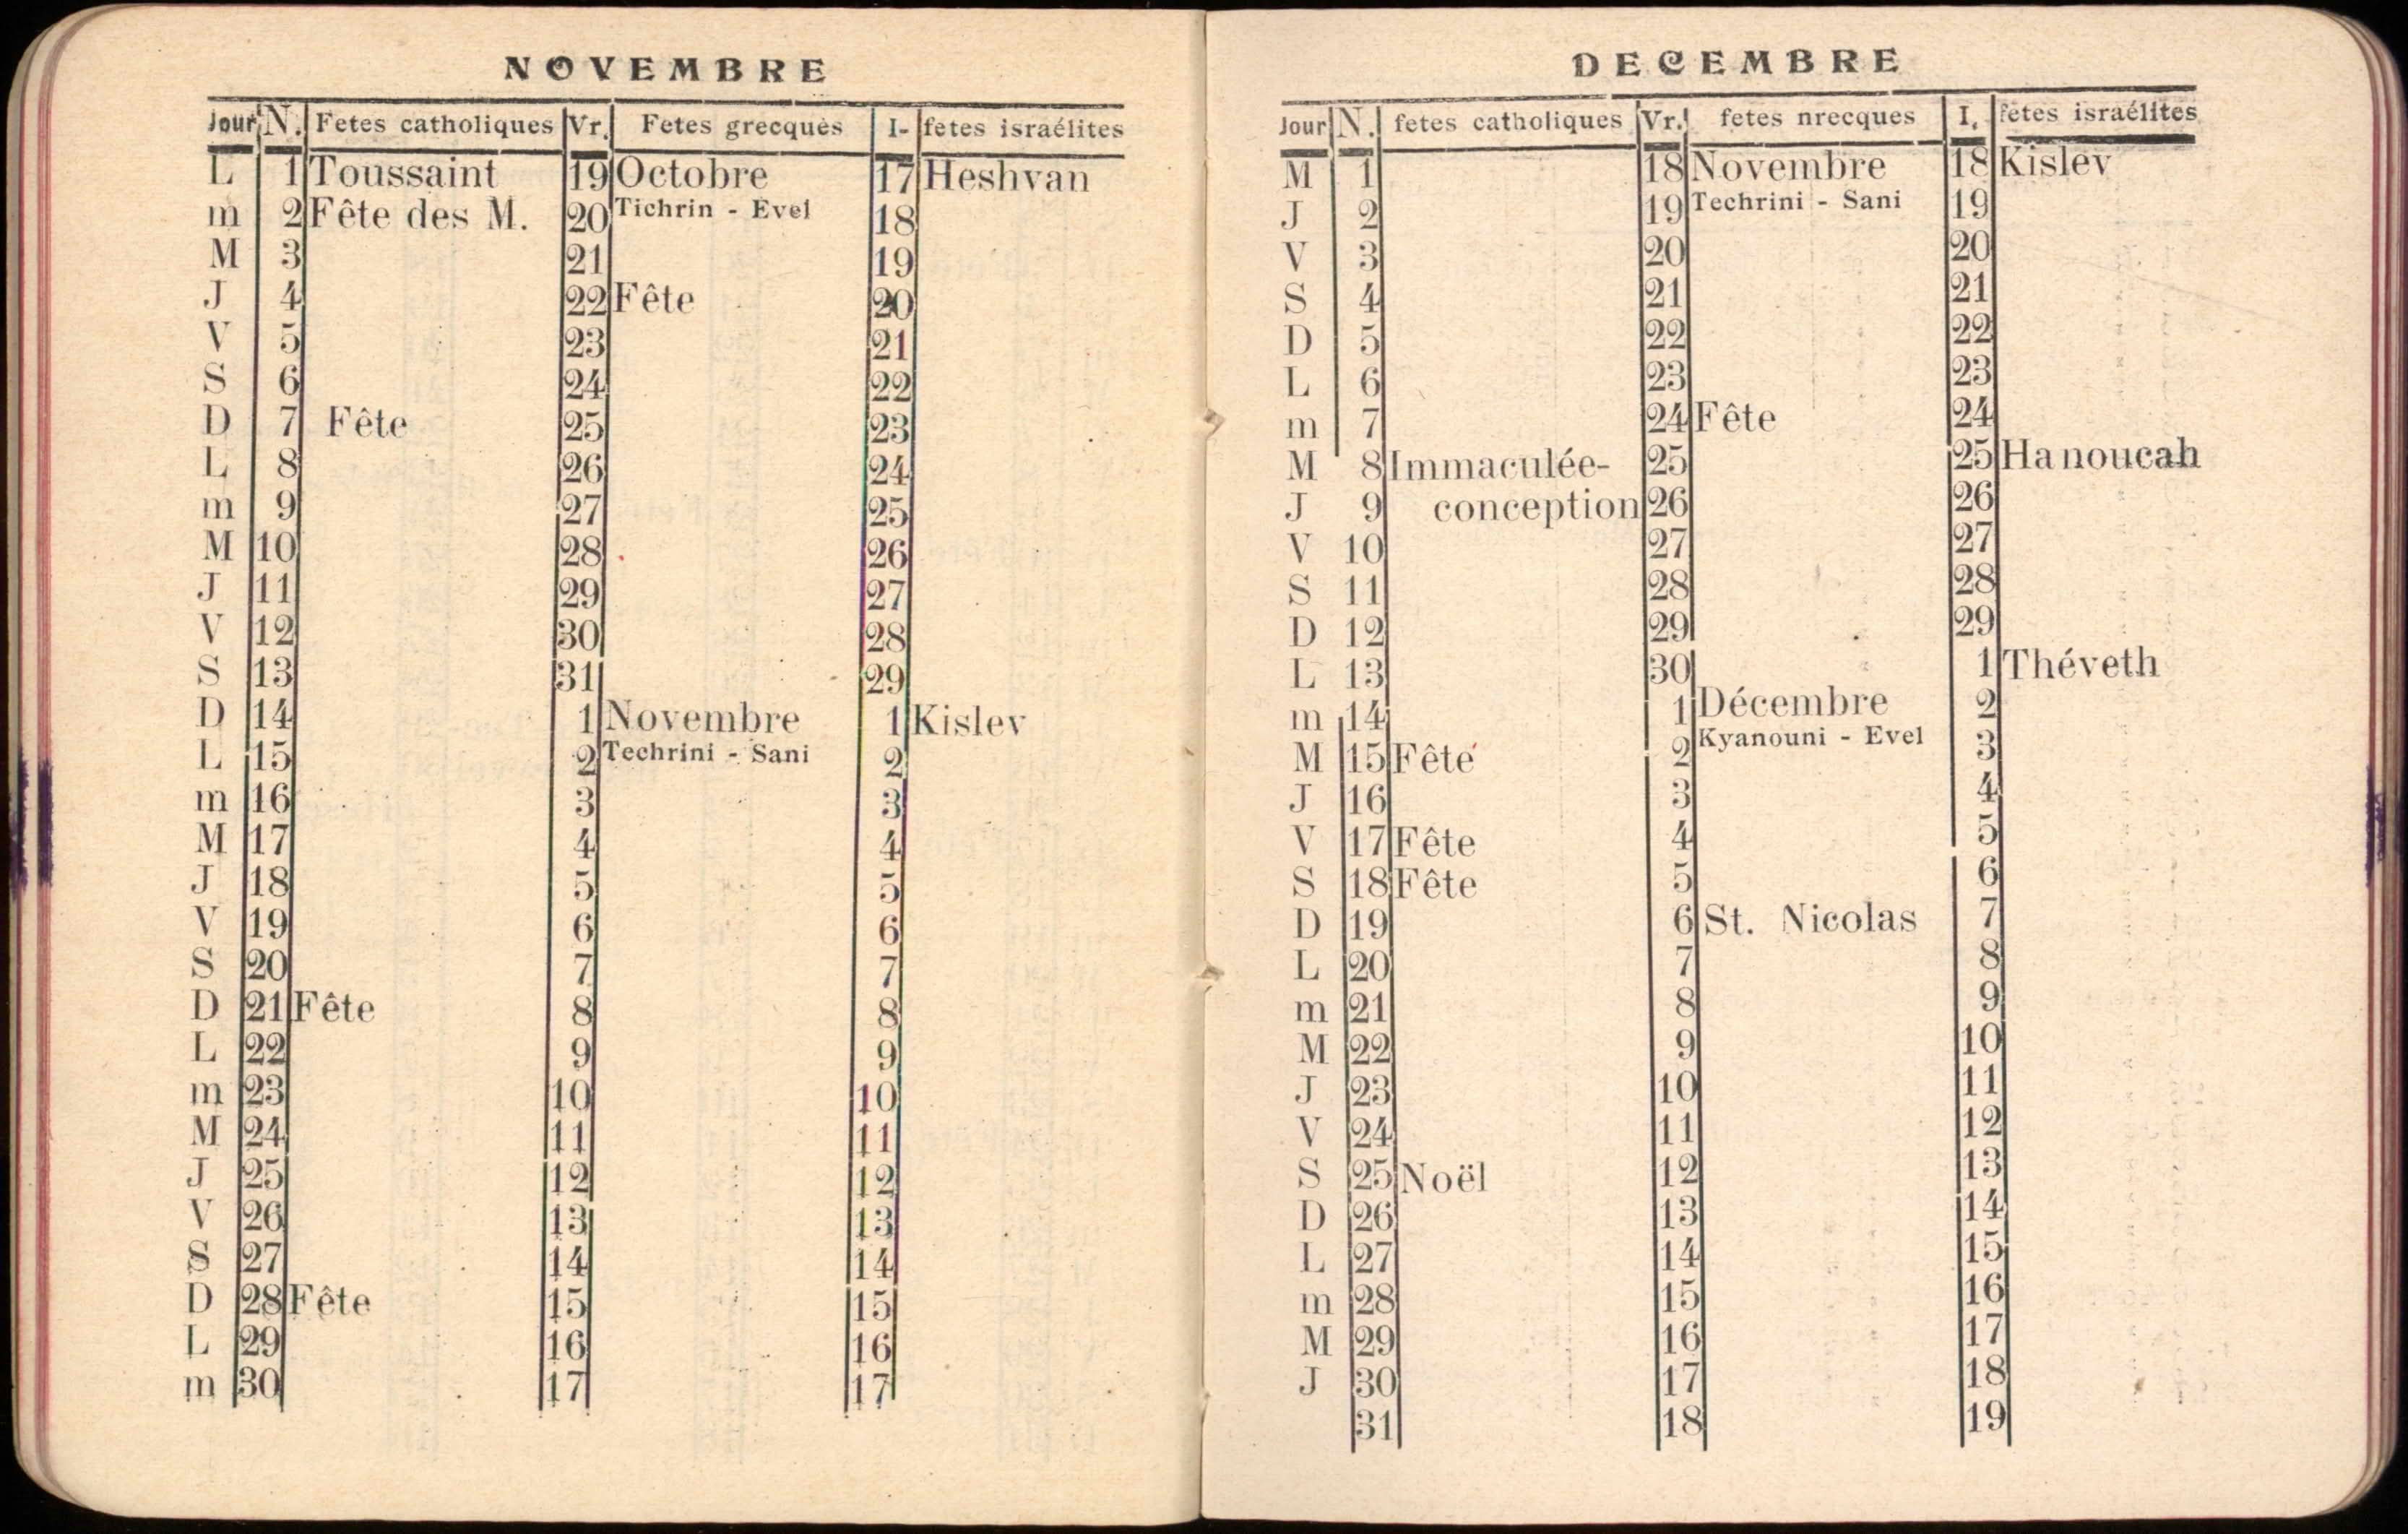 NOVEMBRE
Jour N. Fetes catholiques Vr. Fetes grecques I- fetes israélites
L 1 Toussaint 19 Octobre 17 Heshvan
m 2 Fête des M. 20 Tichrin - Evel 18
M 3 21 19
J 4 22 Fête 20
V 5 23 21
S 6 24 22
D 7 Fête 25 23
L 8 26 24
m 9 27 25
M 10 28 26
J 11 29 27
V 12 30 28
S 13 31 29
D 14 1 Novembre 1 Kislev
L 15 2 Techrini - Sani 2
m 16 3 3
M 17 4 4
J 18 5 5
V 19 6 6
S 20 7 7
D 21 Fête 8 8
L 22 9 9
m 23 10 10
M 24 11 11
J 25 12 12
V 26 13 13
S 27 14 14
D 28 Fête 15 15
L 29 16 16
m 30 17 17
DECEMBRE
Jour N. fetes catholiques Vr. fetes nrecques I. fetes israélites
M 1 18 Novembre 18 Kislev
J 2 19 Techrini - Sani 19
V 3 20 20
S 4 21 21
D 5 22 22
L 6 23 23
m 7 24 Fête 24
M 8 Immaculée- 25 25 Hanoucah
J 9 conception 26 26
V 10 27 27
S 11 28 28
D 12 29 29
L 13 30 1 Théveth
m 14 1 Décembre 2
M 15 Fête 2 Kyanouni - Evel 3
J 16 3 4
V 17 Fête 4 5
S 18 Fête 5 6
D 19 6 St. Nicolas 7
L 20 7 8
m 21 8 9
M 22 9 10
J 23 10 11
V 24 11 12
S 25 Noël 12 13
D 26 13 14
L 27 14 15
m 28 15 16
M 29 16 17
J 30 17 18
31 18 19